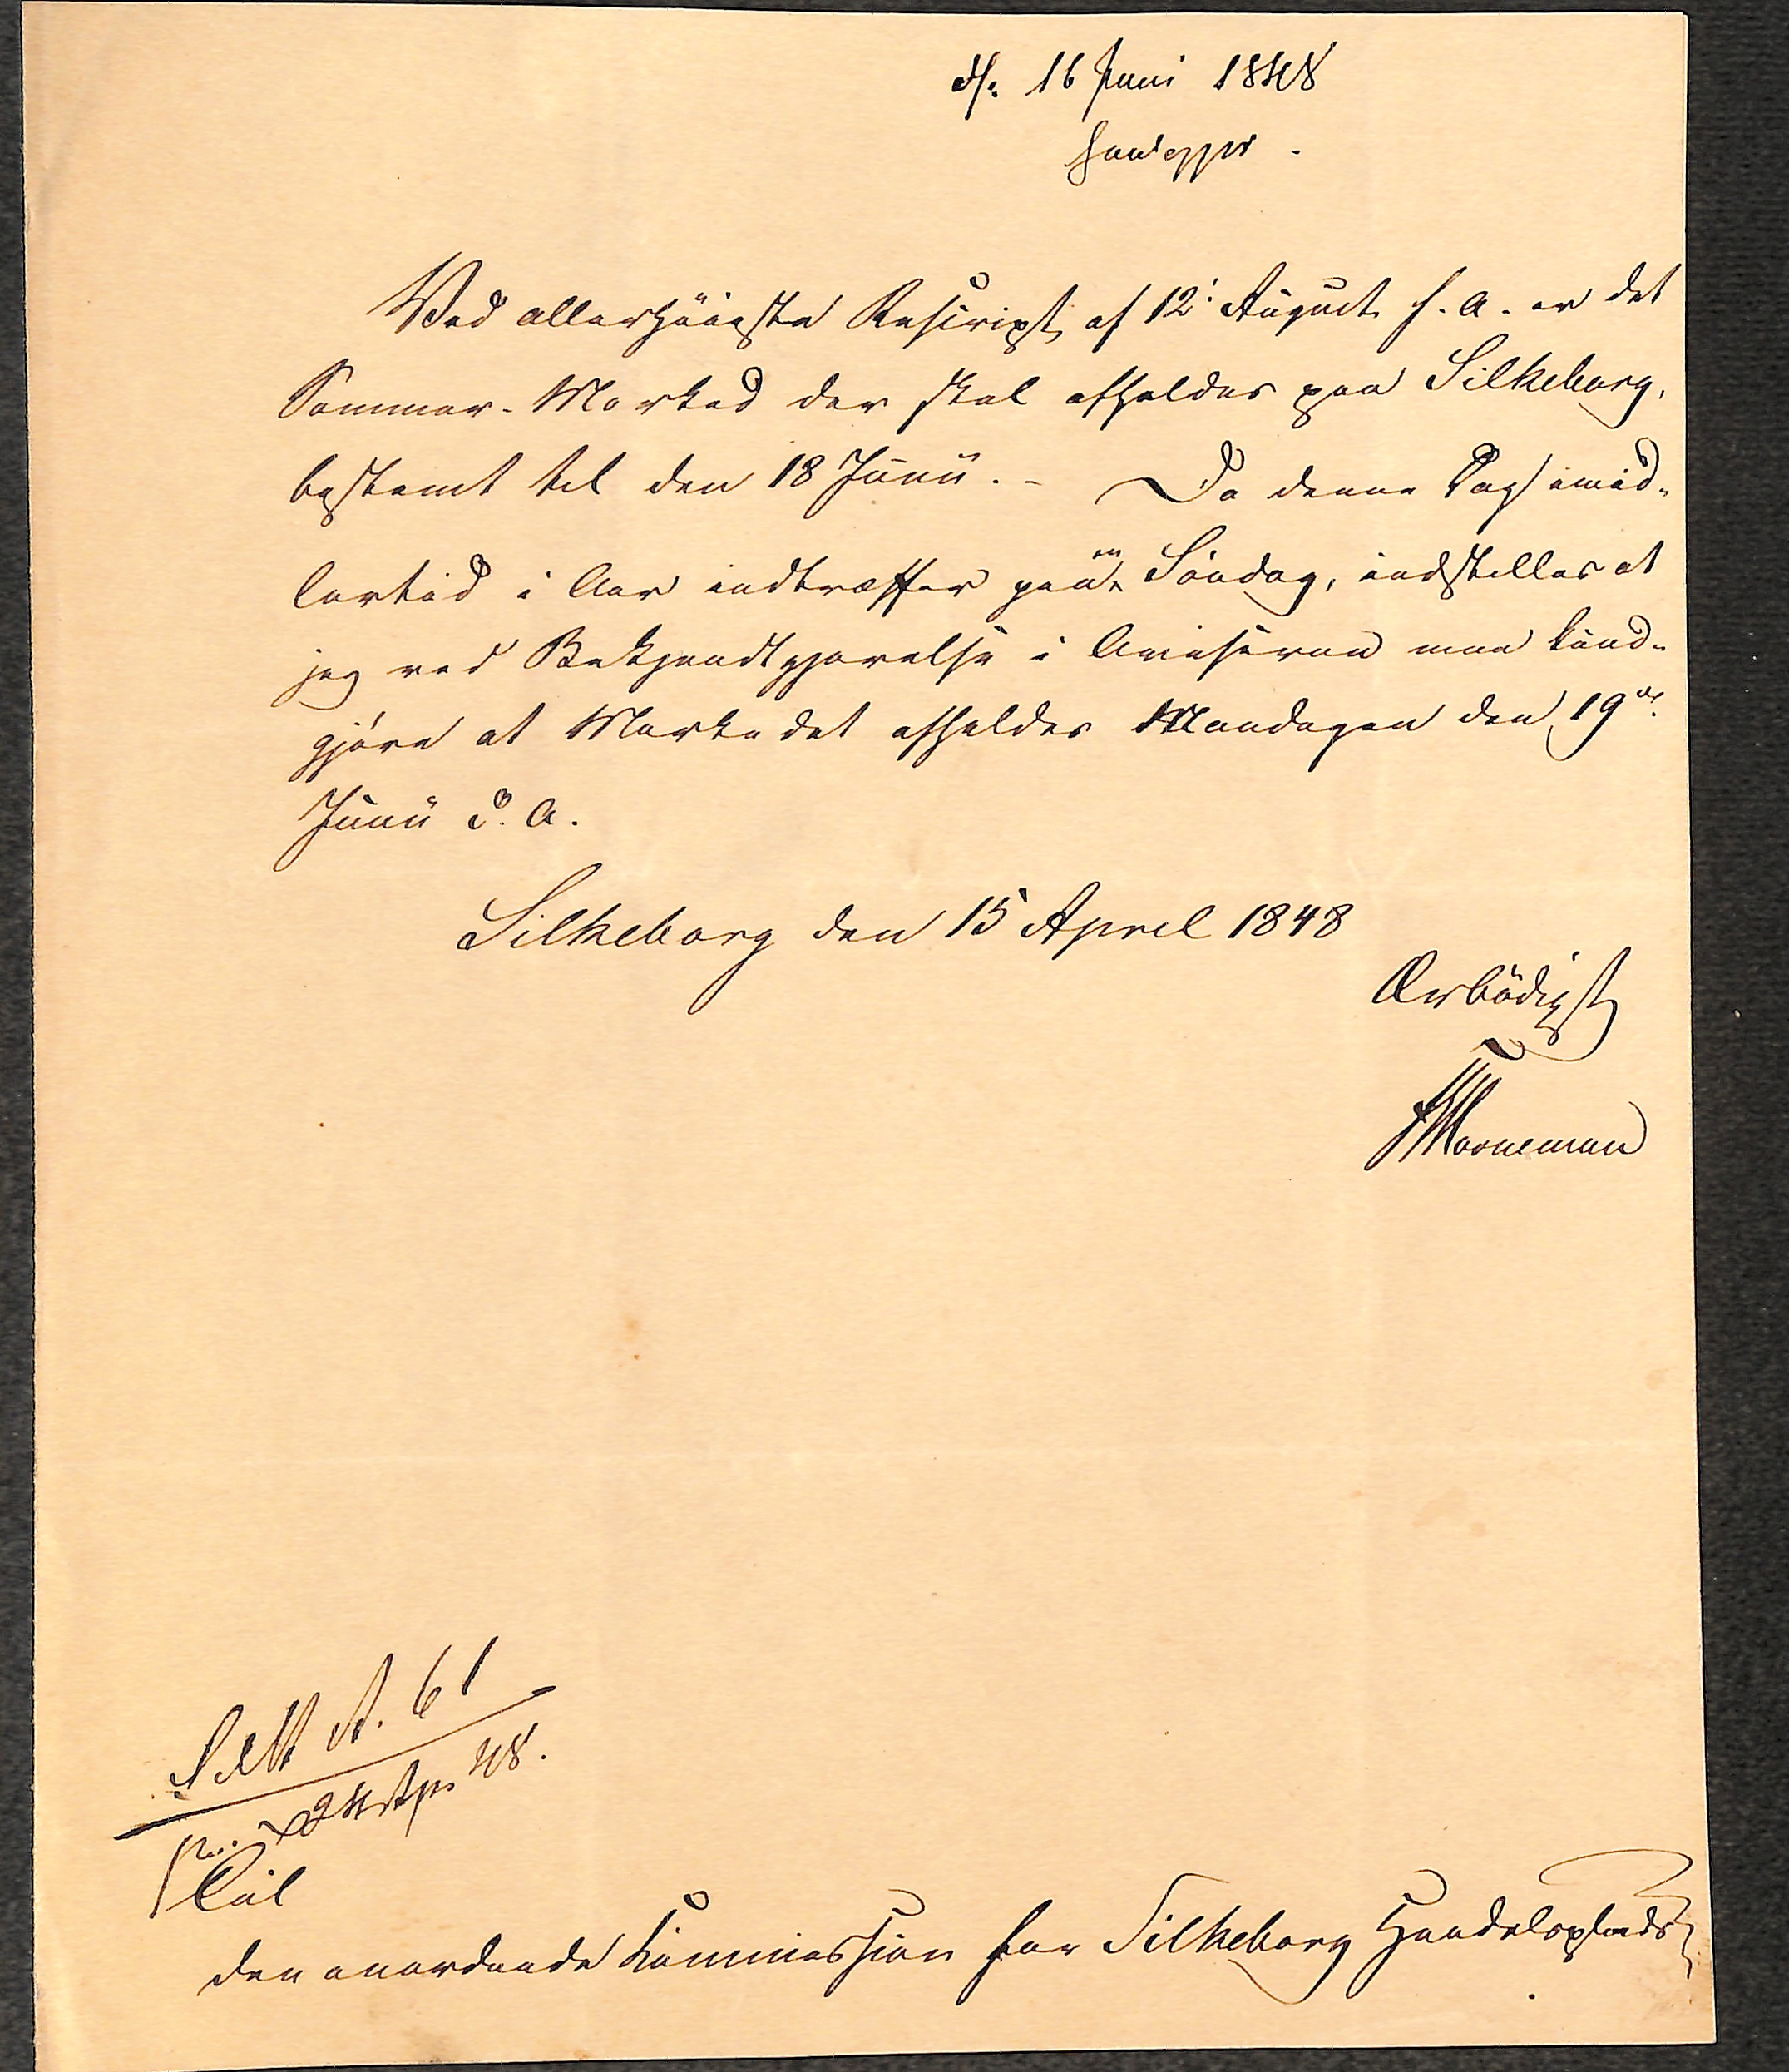 d/: 16 Juni 1848
Ved allerhöieste Rescript af 12' August f. A. er det
Sommer-Marked der skal afholdes paa Silkeborg,
bestemt til den 18 Junii. - Da denne Dag imid-
lertid i Aar indtræffer paa en Söndag, indstilles at
jeg ved Bekjendtgjørelse i Aviserne maa kund-
gjøre at Markedet afholdes Mandagen den 19de
Junii d. A.
Silkeborg den 15 April 1848
Ærbödigst
No. 61
24 Apr 48.
Til
den anordnede Kommission for Silkeborg Handelsplads